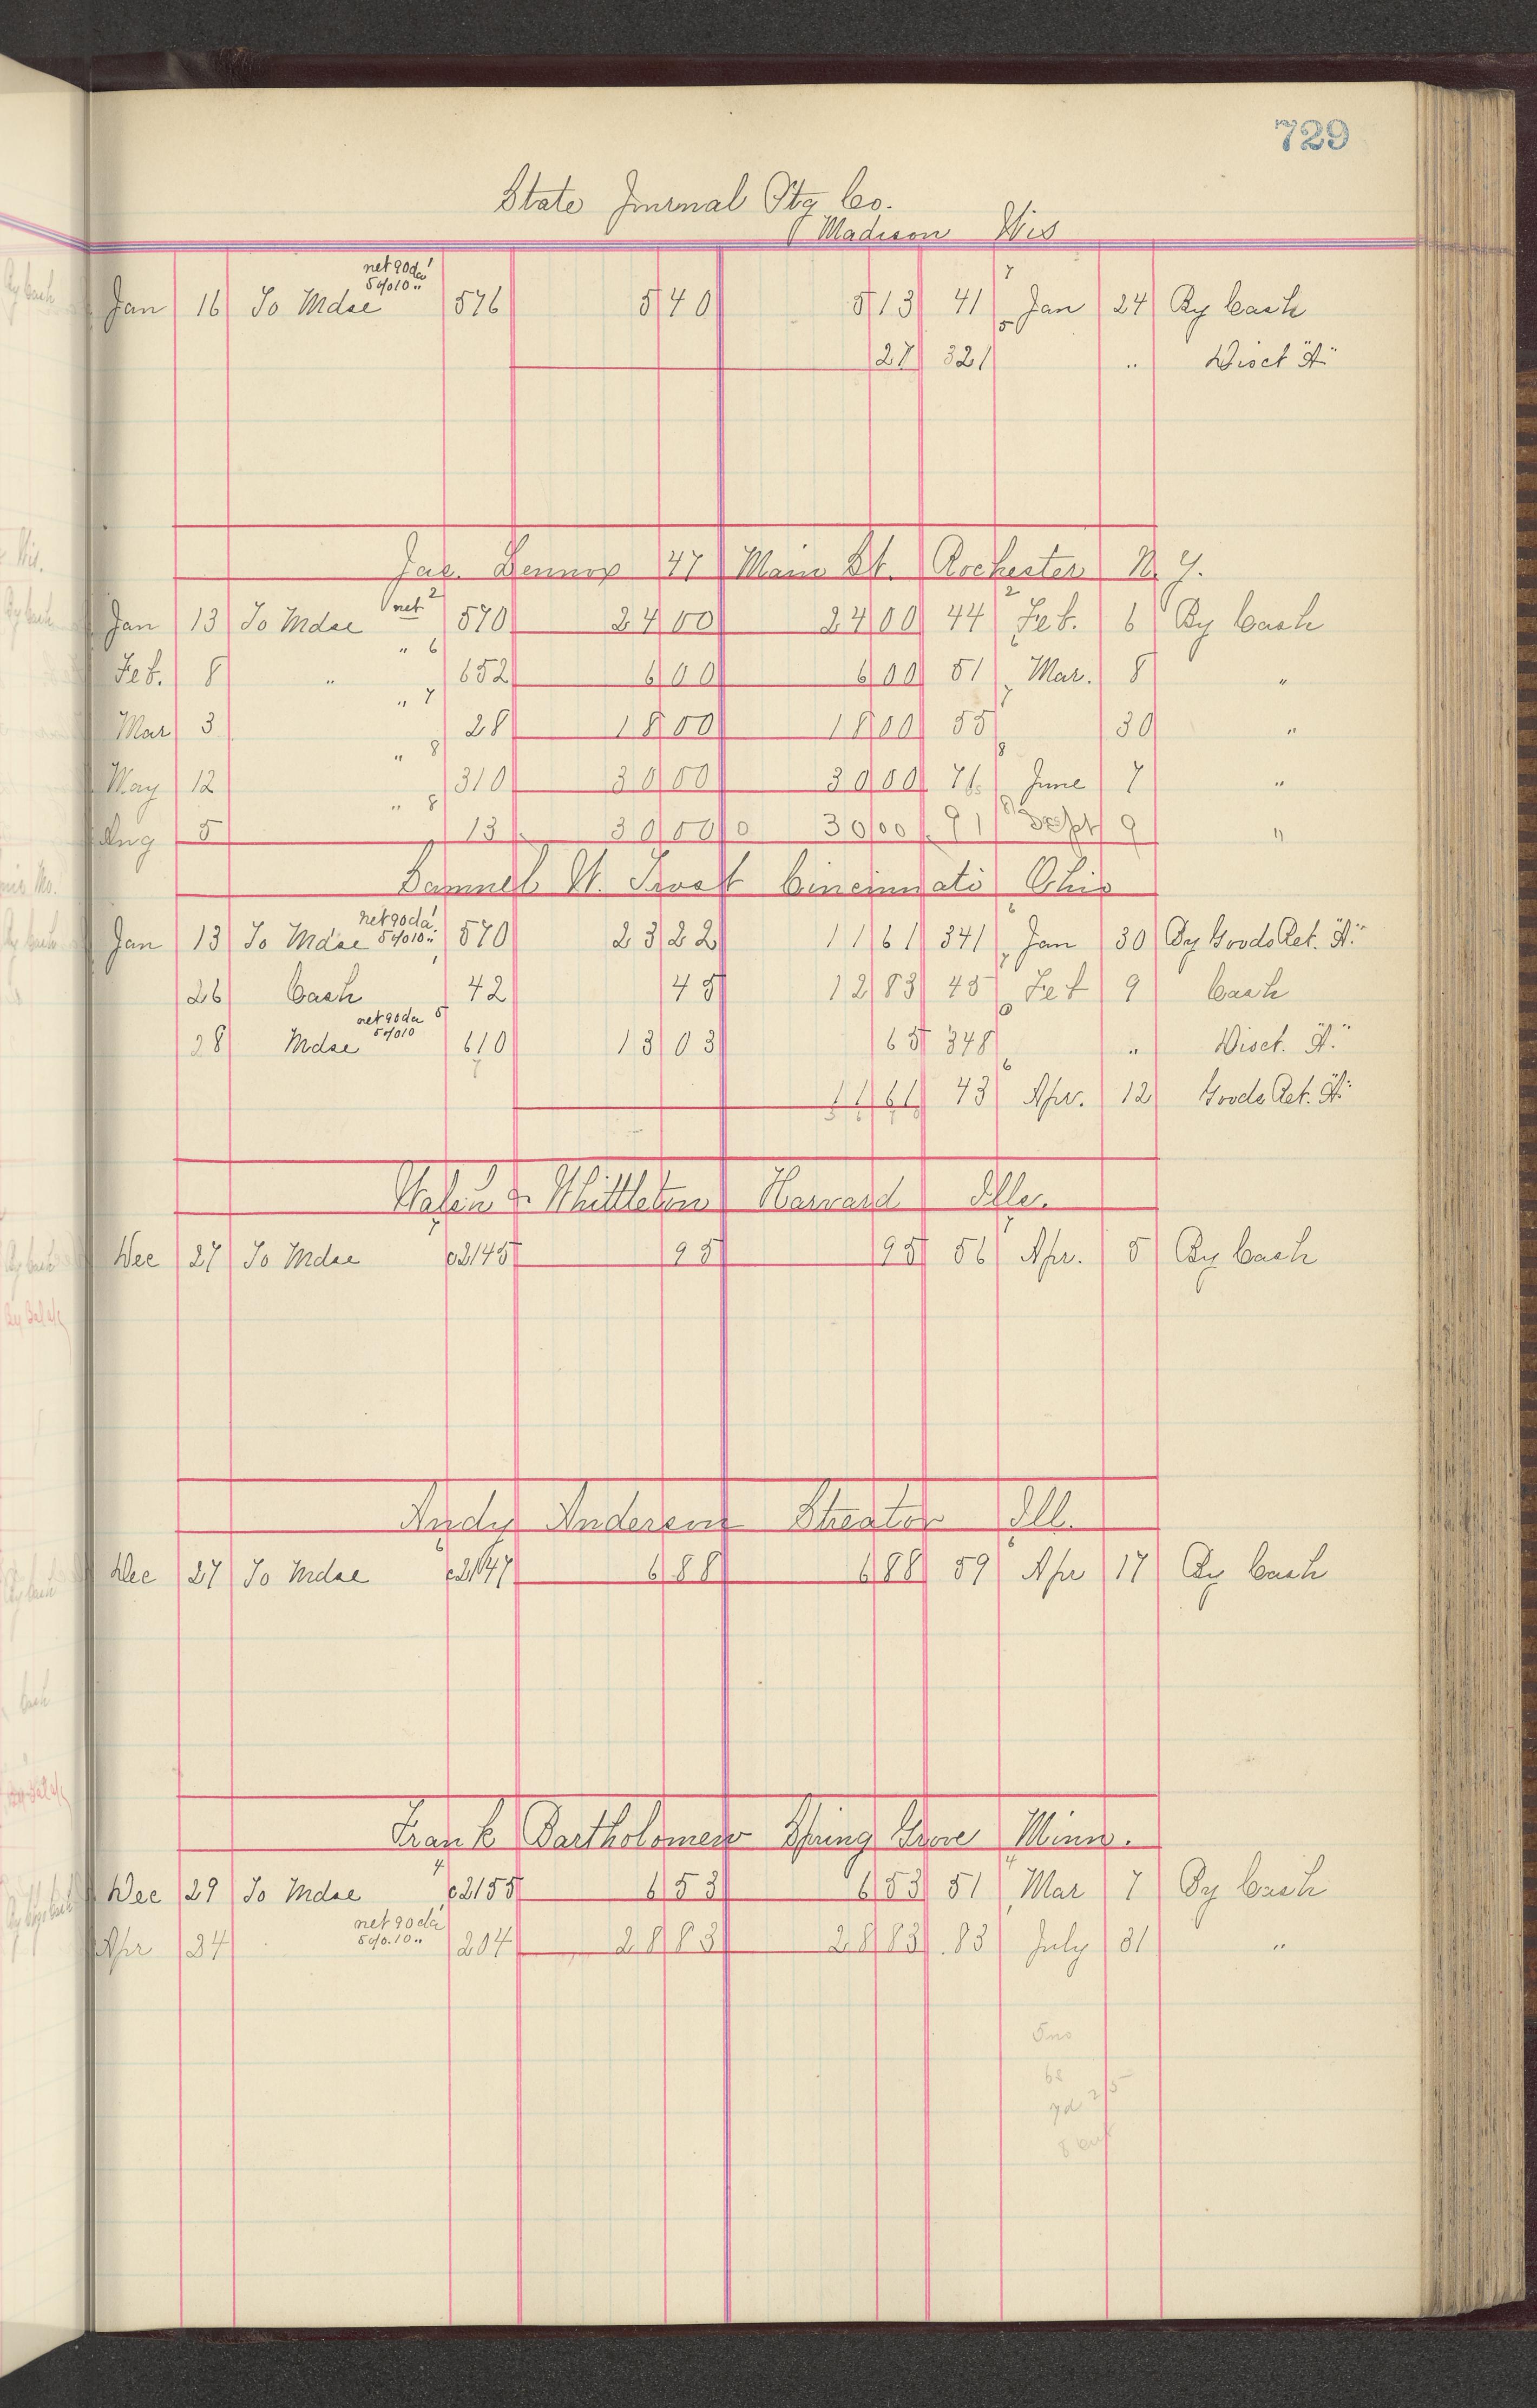 729
State Journal Ptg Co.
Madison Wis
Jan 16 To Mdse net 90 da 5% 10 " 576 5 40 5 13 41 Jan 24 By Cash
27 321 " Disct "A"
Jas. Lennox 47 Main St. Rochester N.Y.
Jan 13 To Mdse net 2 570 24 00 24 00 44 2 Feb. 6 By Cash
Feb. 8 " " 6 652 6 00 6 00 51 Mar. 8 "
Mar 3 " 7 28 18 00 18 00 55 7 30 "
May 12 " 8 310 30 00 30 00 71 8 June 7 "
Aug 5 " 8 13 30 00 30 00 91 8 Sept 9 "
Samuel W. Trost Cincinnati Ohio
Jan 13 To Mdse net 90 da 5% 10 " 570 23 22 11 61 341 6 Jan 30 By Goods Ret. "A"
26 Cash 42 45 12 83 45 7 Feb 9 Cash
28 Mdse net 90 da 5% 10 5 610 13 03 65 348 " Disct. "A"
11 61 43 6 Apr. 12 Goods Ret. "A"
& Harvard Ills.
Dec 27 To Mdse c2145 95 95 56 7 Apr. 5 By Cash
Andy Anderson Streator Ill.
Dec 27 To Mdse 6 c2147 6 88 6 88 59 6 Apr 17 By Cash
Frank Bartholomew Spring Grove Minn.
Dec 29 To Mdse 4 c2155 6 53 6 53 51 4 Mar 7 By Cash
Apr 24 net 90 da 5% 10 " 204 28 83 28 83 83 July 31 "